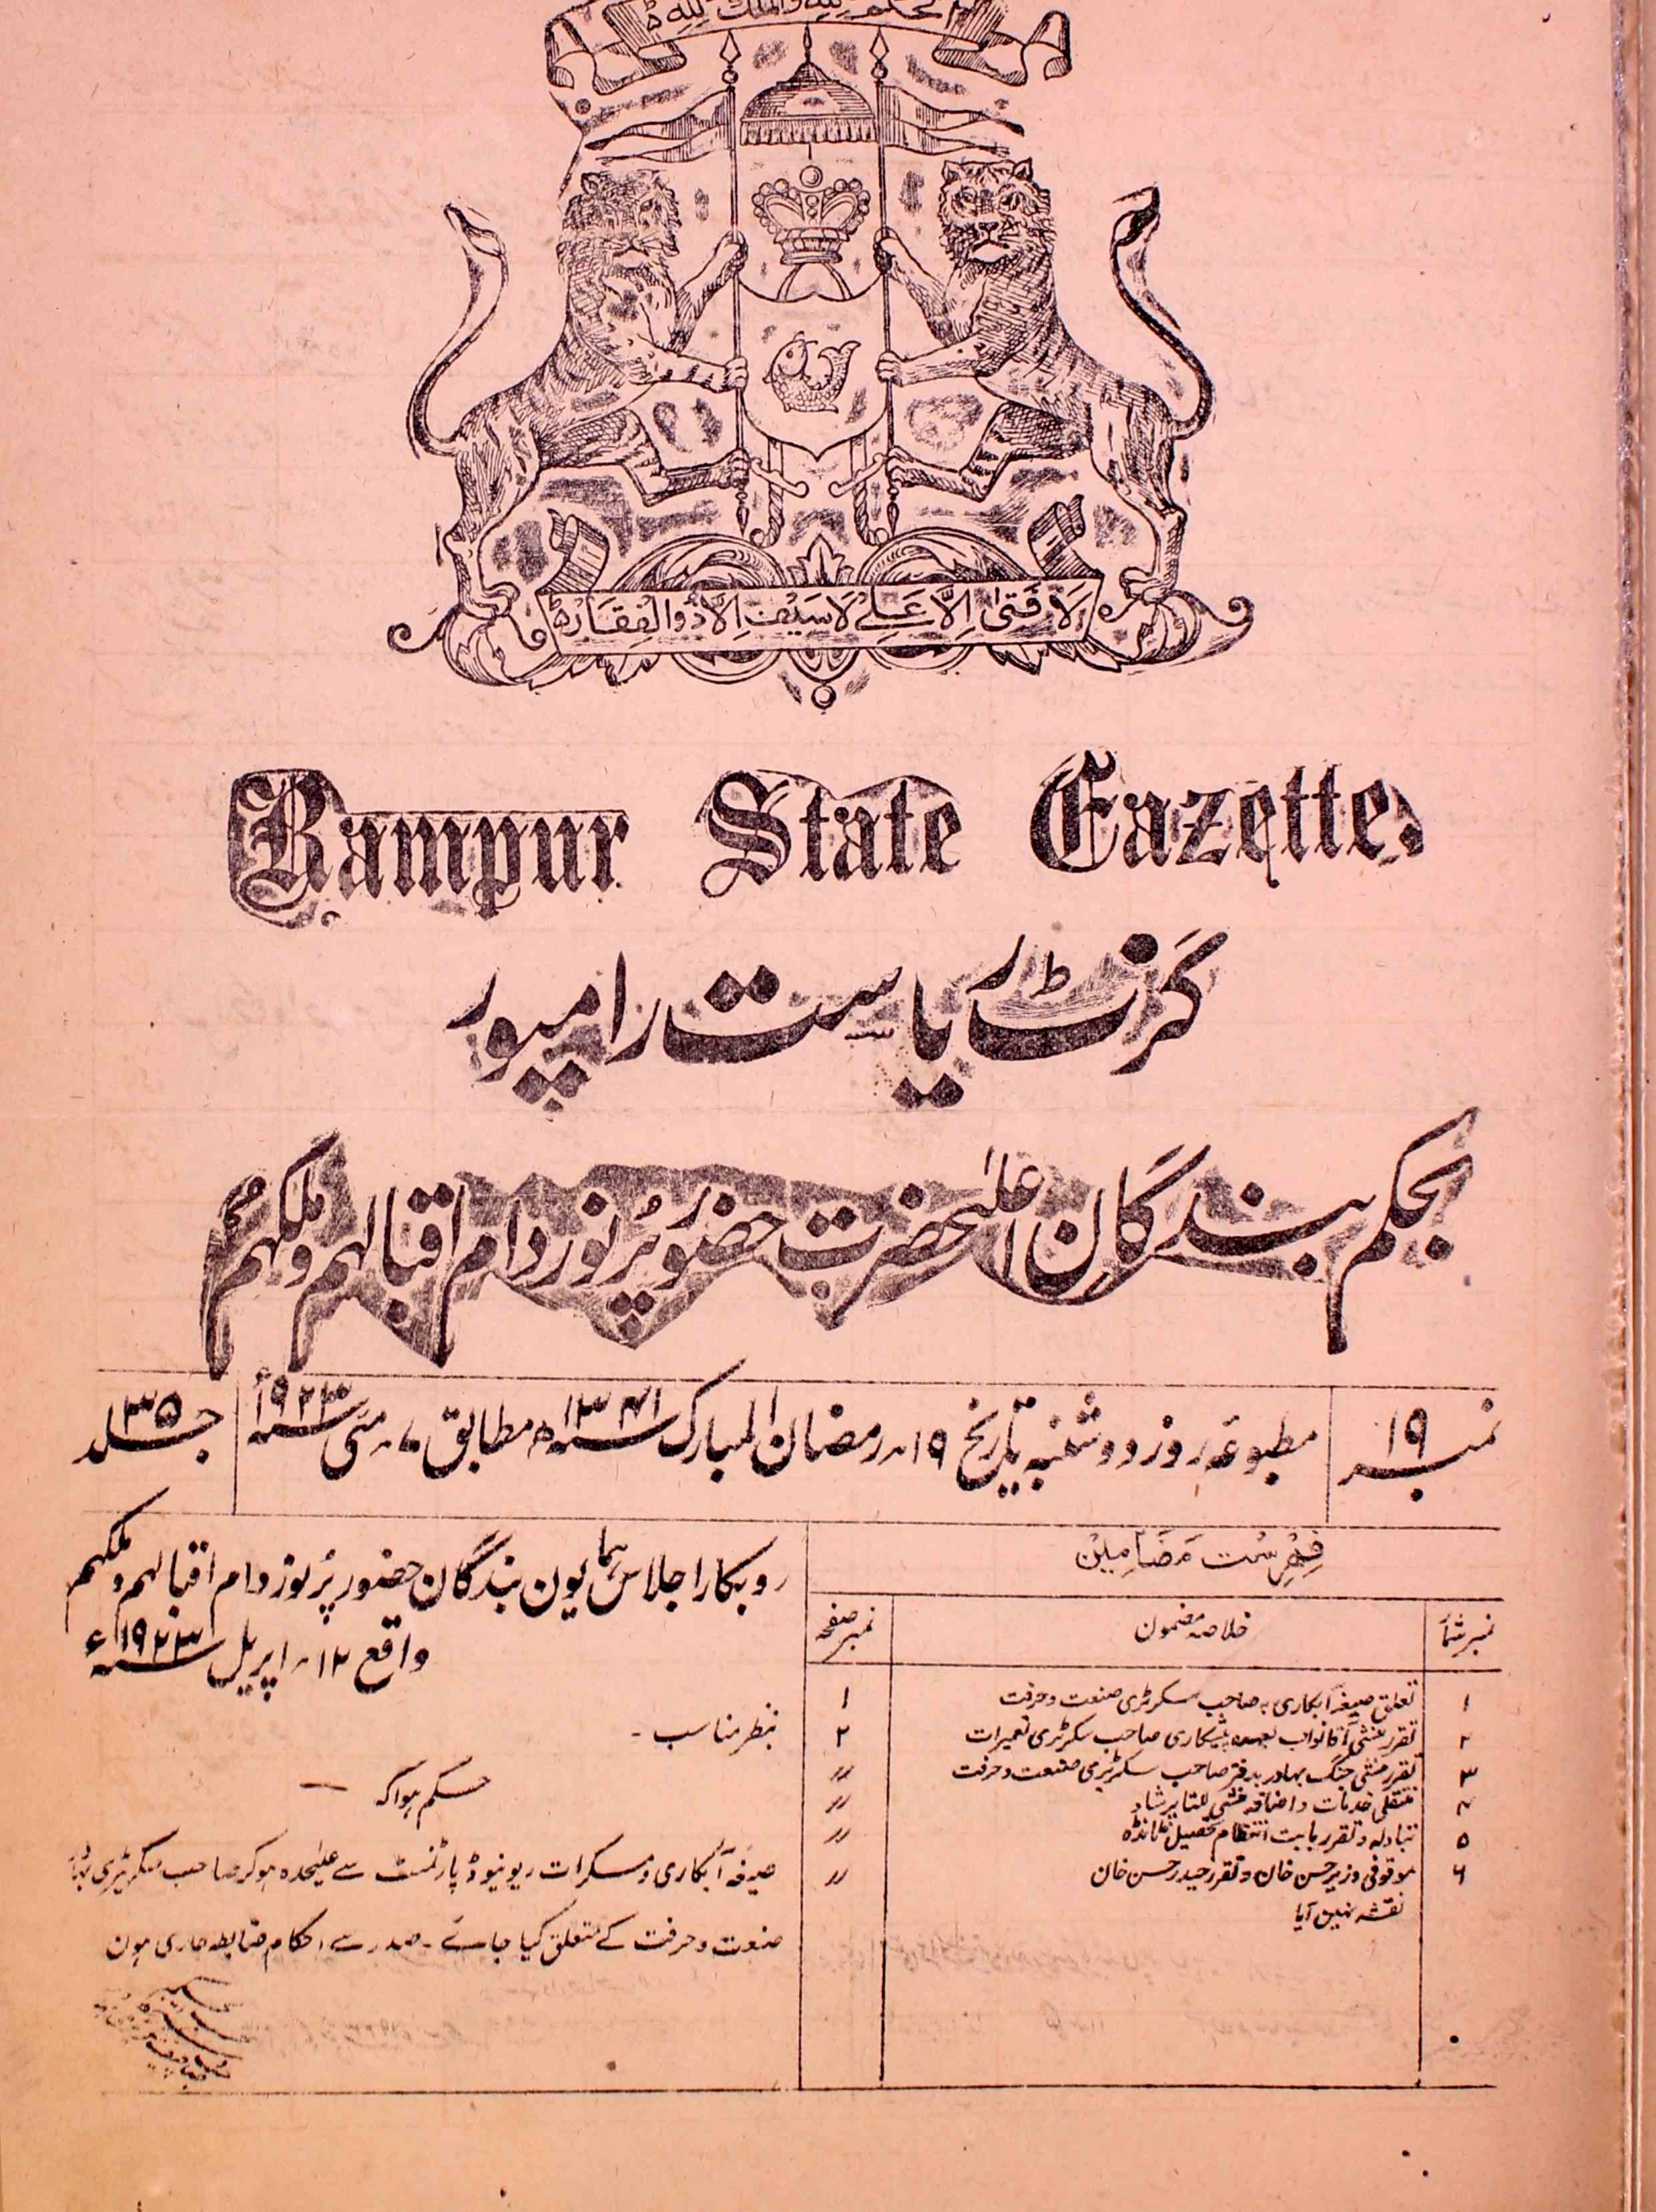 الحکم للہ والملک للہ
لَا فَتٰی اِلَّا عَلِے لَا سَیْف اِلَّا ذُوالْفِقَار
Rampur State Gazette.
گزٹ ریاست رامپور
بحکم بندگان اعلیٰحضرت حضور پُرنور دام اقبالہم و ملکہم
نمبر ۱۹
مطبوعہ روز دو شنبہ تاریخ ۱۹۔ رمضان المبارک سنہ ۱۳۴۱ھ مطابق ۷۔ مئی سنہ ۱۹۲۳ء
جلد ۳۵
فہرست مضامین
نمبر شمار خلاصہ مضمون نمبر صفحہ
۱ تعلق صیغہ آبکاری بہ صاحب سکرٹری صنعت و حرفت ۱
۲ تقرر منشی آقا نواب بعہدہ پیشکاری صاحب سکرٹری تعمیرات ۲
۳ تقرر منشی جنگ بہادر بدفتر صاحب سکرٹری صنعت و حرفت 〃
۴ منتقلی خدمات و اضافہ منشی للتا پرشاد 〃
۵ تبادلہ و تقرر بابت انتظام تحصیل ٹانڈہ 〃
۶ موقوفی وزیر حسن خان و تقرر حیدر حسن خان 〃
نقشہ نہین آیا
روبکار اجلاس ہمایون بندگان حضور پُرنور دام اقبالہم و ملکہم
واقع ۱۲۔ اپریل سنہ ۱۹۲۳ء
بنظر مناسب ۔
حکم ہوا کہ —
صیغہ آبکاری و مسکرات ریونیو ڈپارٹمنٹ سے علیٰحدہ ہو کر صاحب سکریٹری بہادر
صنعت و حرفت کے متعلق کیا جائے ۔ صدر سے احکام ضابطہ جاری ہون